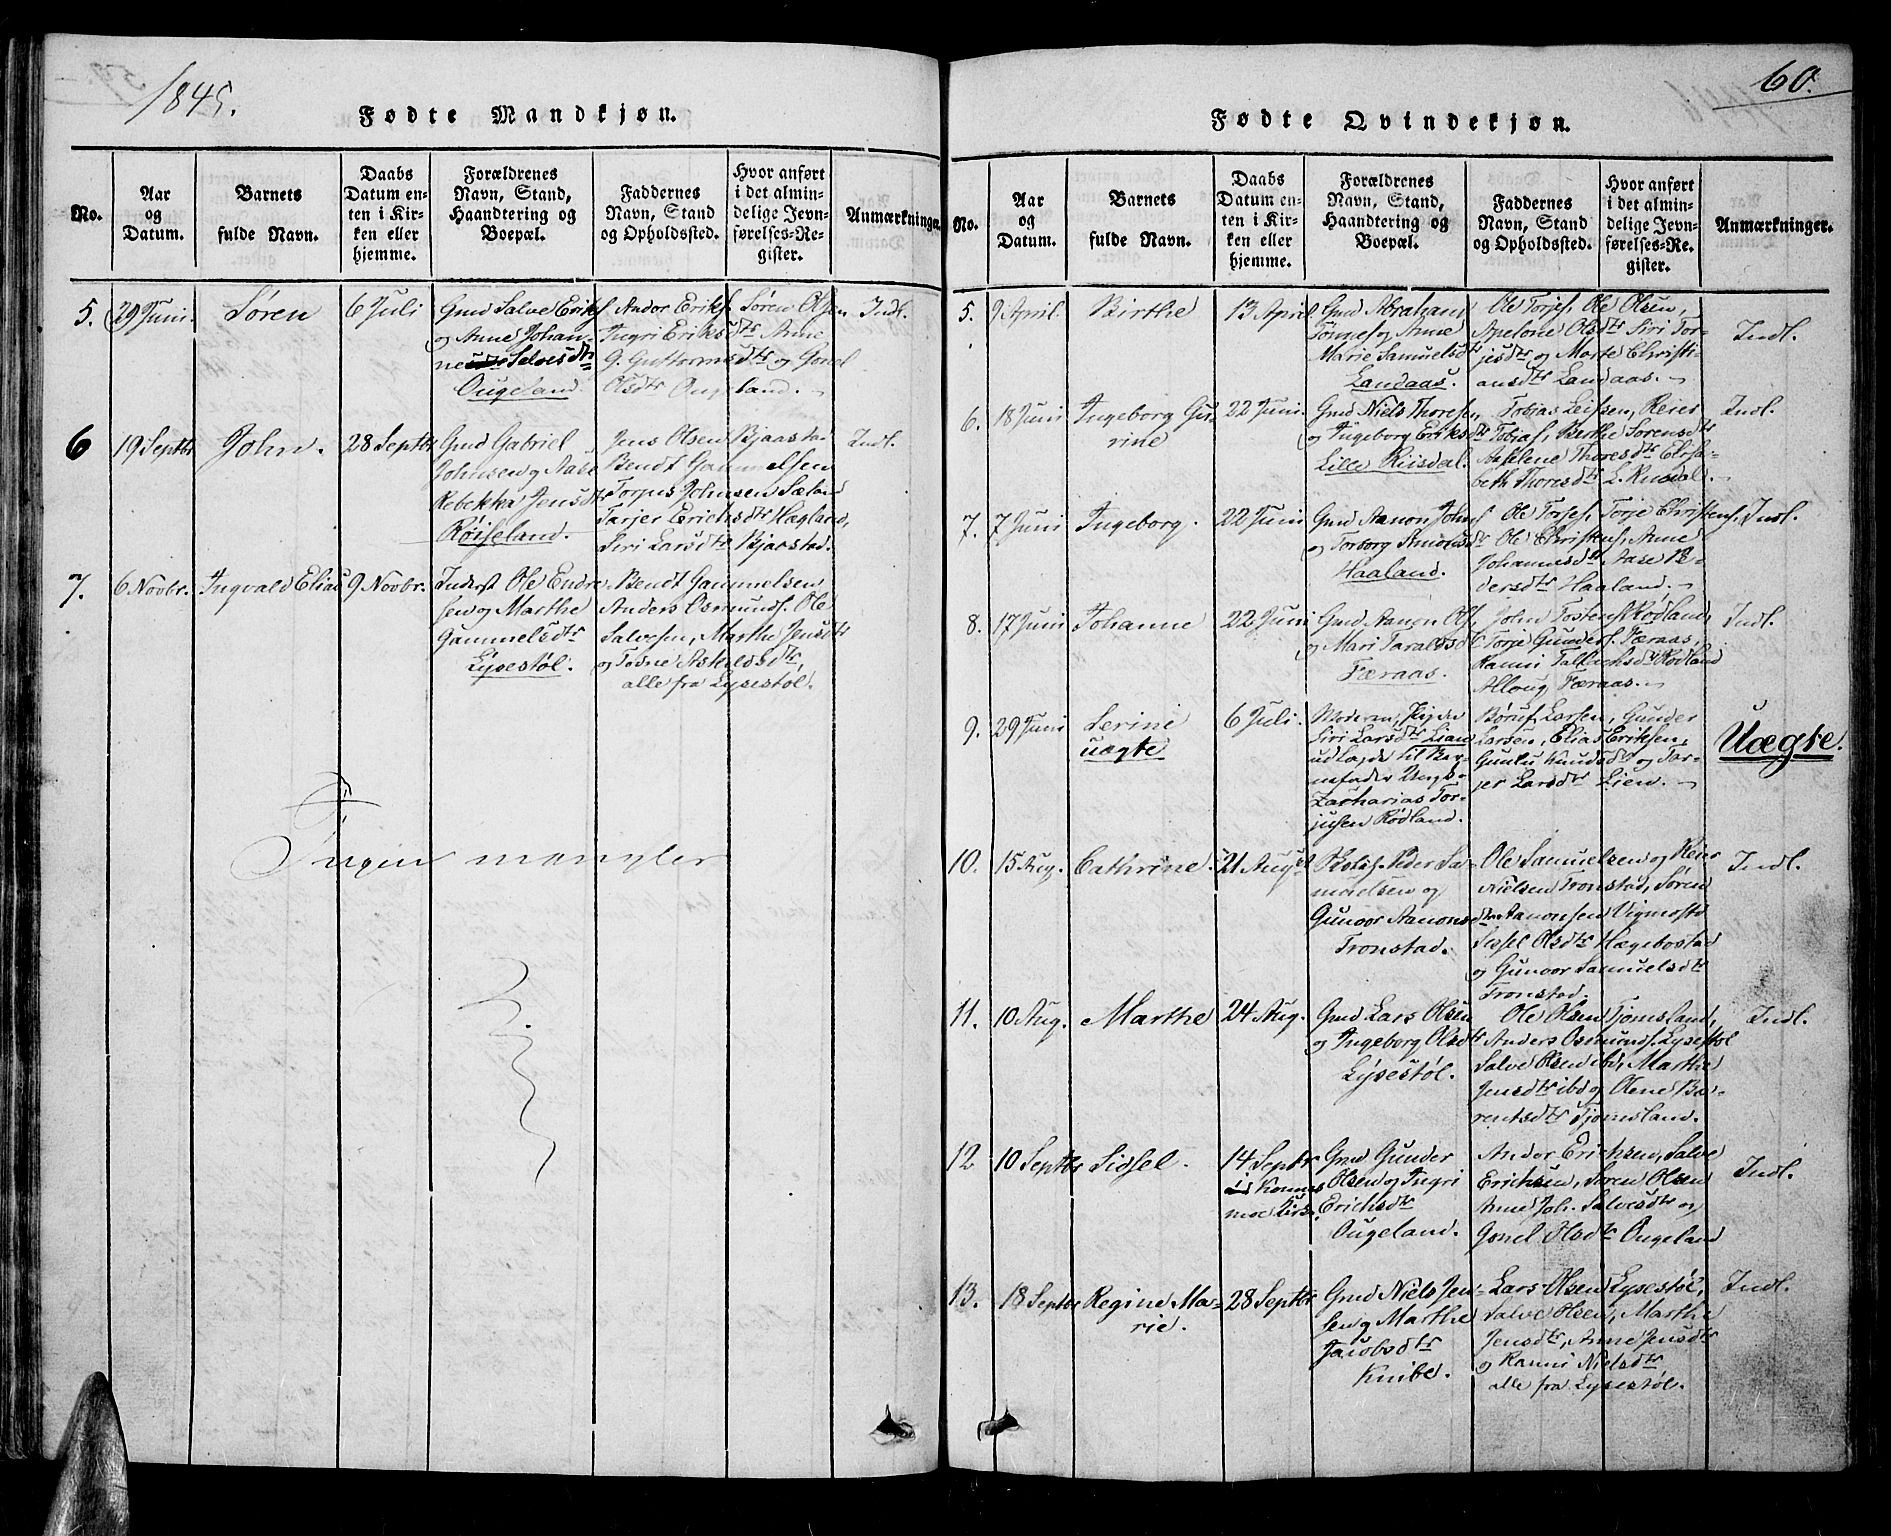 1845.
Fødte Mandkjøn.
No.
Aar
og
Datum.
Barnets
fulde Navn.
Daabs
Datum en-
ten i Kir-
ken eller
hjemme.
Forældrenes
Navn, Stand,
Haandtering og
Boepæl.
Faddernes
Navn, Stand
og Opholdssted.
Hvor anført
i det almin-
delige Jevn-
førelses-Re-
gister.
Anmærkninger.
5. 29 Juni. Søren 6 Juli
Gmd Salve Eriks
og Anne Johan-
ne Salvesdtr
Ougeland
Andor Eriks. Søren Olsen
Ingri Eriksdtr Anne
G. Guttormsdtr og Gonel
Olsdtr Ougeland.
Indl.
6 19 Septbr John. 28 Septbr
Gmd Gabriel
Johnsen og Aase
Rebekka Jensdtr
Røiseland.
Jens Olsen Bjaastad
Bendt Gammelsen
Torjus Johnsen Sæland
Tarjer Erichsdtr Hægland,
Siri Larsdtr Bjaastad.
Indl.
7. 6 Novbr. Ingvald Elias 9 Novbr.
Inderst Ole Endre-
sen og Marthe
Gammelsdtr
Lysestøl.
Bendt Gammelsen
Anders Osmunds. Ole
Salvesen, Marthe Jensdtr
og Tosne Askjelsdtr,
alle fra Lysestøl.
Ingen mangler
60.
Fødte Qvindekjøn.
No.
Aar
og
Datum.
Barnets
fulde Navn.
Daabs
Datum en-
ten i Kir-
ken eller
hjemme.
Forældrenes
Navn, Stand,
Haandtering og
Boepæl.
Faddernes
Navn, Stand
og Opholdssted.
Hvor anført
i det almin-
delige Jevn-
førelses-Re-
gister.
Anmærkninger.
5. 9 April. Birthe 13 April
Gmd Abraham
Tønnes og Anne
Marie Samuelsdtr
Landaas.
Ole Torjes, Ole Olsen,
Apelone Olsdtr Siri Tor-
jesdtr og Marte Christi-
ansdtr Landaas.
Indl.
6. 18 Juni Ingeborg Gu-
rine 22 Juni.
Gmd Niels Thoresen
og Ingeborg Eriksdtr
Lille Riisdal.
Tobias Leifsen, Reier
Tobias, Berthe Sørensdtr
Aaselene Thoresdtr Elisa-
beth Thoresdtr L. Riisdal.
Indl.
7. 7 Juni Ingeborg. 22 Juni
Gmd Aanon Johns
og Torborg Amosdtr
Haaland.
Ole Torjes, Torje Christens,
Ole Christens, Anne
Johannesdtr Aase Pe-
dersdtr Haaland.
Indl.
8. 17 Juni Johanne 22 Juni
Gmd Aanon Ols.
og Mari Taraldsd
Færaas.
John Tostens Rødland,
Torje Gunders. Færaas,
Ranni Tallachsdtr Rødland
Alloug Færaas.
Indl.
9. 29 Juni Serine
uægte 6 Juli.
Moderen, Pigen
Siri Larsdtr Lian
udlagde til Bar-
nefader Ungk.
Zacharias Tor-
jusen Rødland.
Børuf Larsen, Gunder
Larsen, Elias Eriksen,
Gunlu Knudsdtr og Tar-
jer Larsdtr Lien.
Uægte.
10. 15 Aug. Cathrine. 21 August
Peder Sa-
muelsen og
Gunvor Aanonsdtr
Tronstad.
Ole Samuelsen og Reier
Nielsen Tronstad, Søren
Aanonsen Vigmostd
Sissel Olsdtr Hægebostad
og Gunvor Samuelsdtr
Tronstad.
Indl.
11. 10 Aug. Marthe 24 Aug.
Gmd Lars Olsen
og Ingeborg Olsdtr
Lysestøl.
Ole Olsen Tjomsland,
Anders Osmunds. Lysestøl
Salve Olsen ibd, Marthe
Jensdtr ibd og Olene Be-
rentsdtr Tjomsland.
Indl.
12 10 Septbr Sidsel. 14 Septbr
Konnes
moe Kirke.
Gmd Gunder
Olsen og Ingri
Erichsdtr
Ougeland.
Andor Erichsen, Salve
Erichsen, Søren Olsen
Anne Joh. Salvesdtr og
Gonel Olsdtr Ougeland
Indl.
13. 18 Septbr Regine Ma-
rie. 28 Septbr
Gmd Niels Jen-
sen og Marthe
Jacobsdtr
Knibe.
Lars Olsen Lysestøl,
Salve Olsen, Marthe
Jensdtr, Anne Jensdtr
og Ranni Nielsdtr,
alle fra Lysestøl.
Indl.